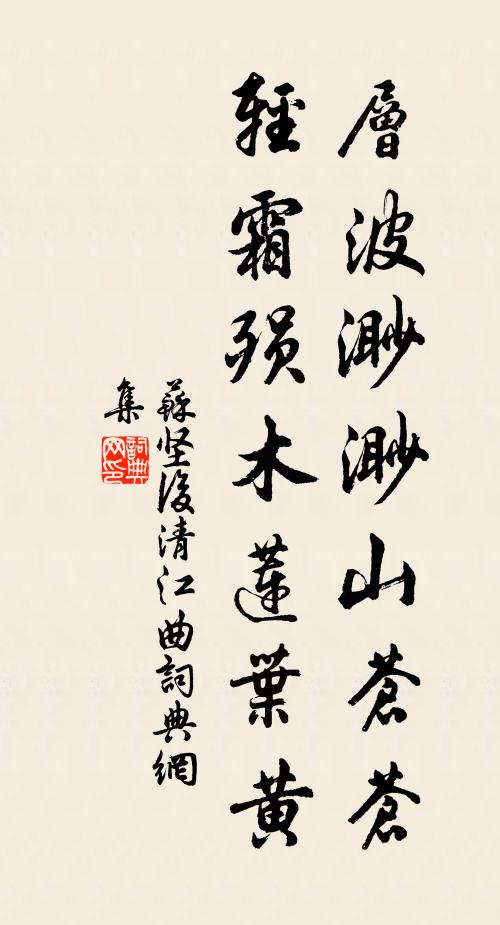 層波渺渺山蒼蒼
輕霜殞木蓮葉黄
蘇坚後清江曲詞典網
集
詞典
网印